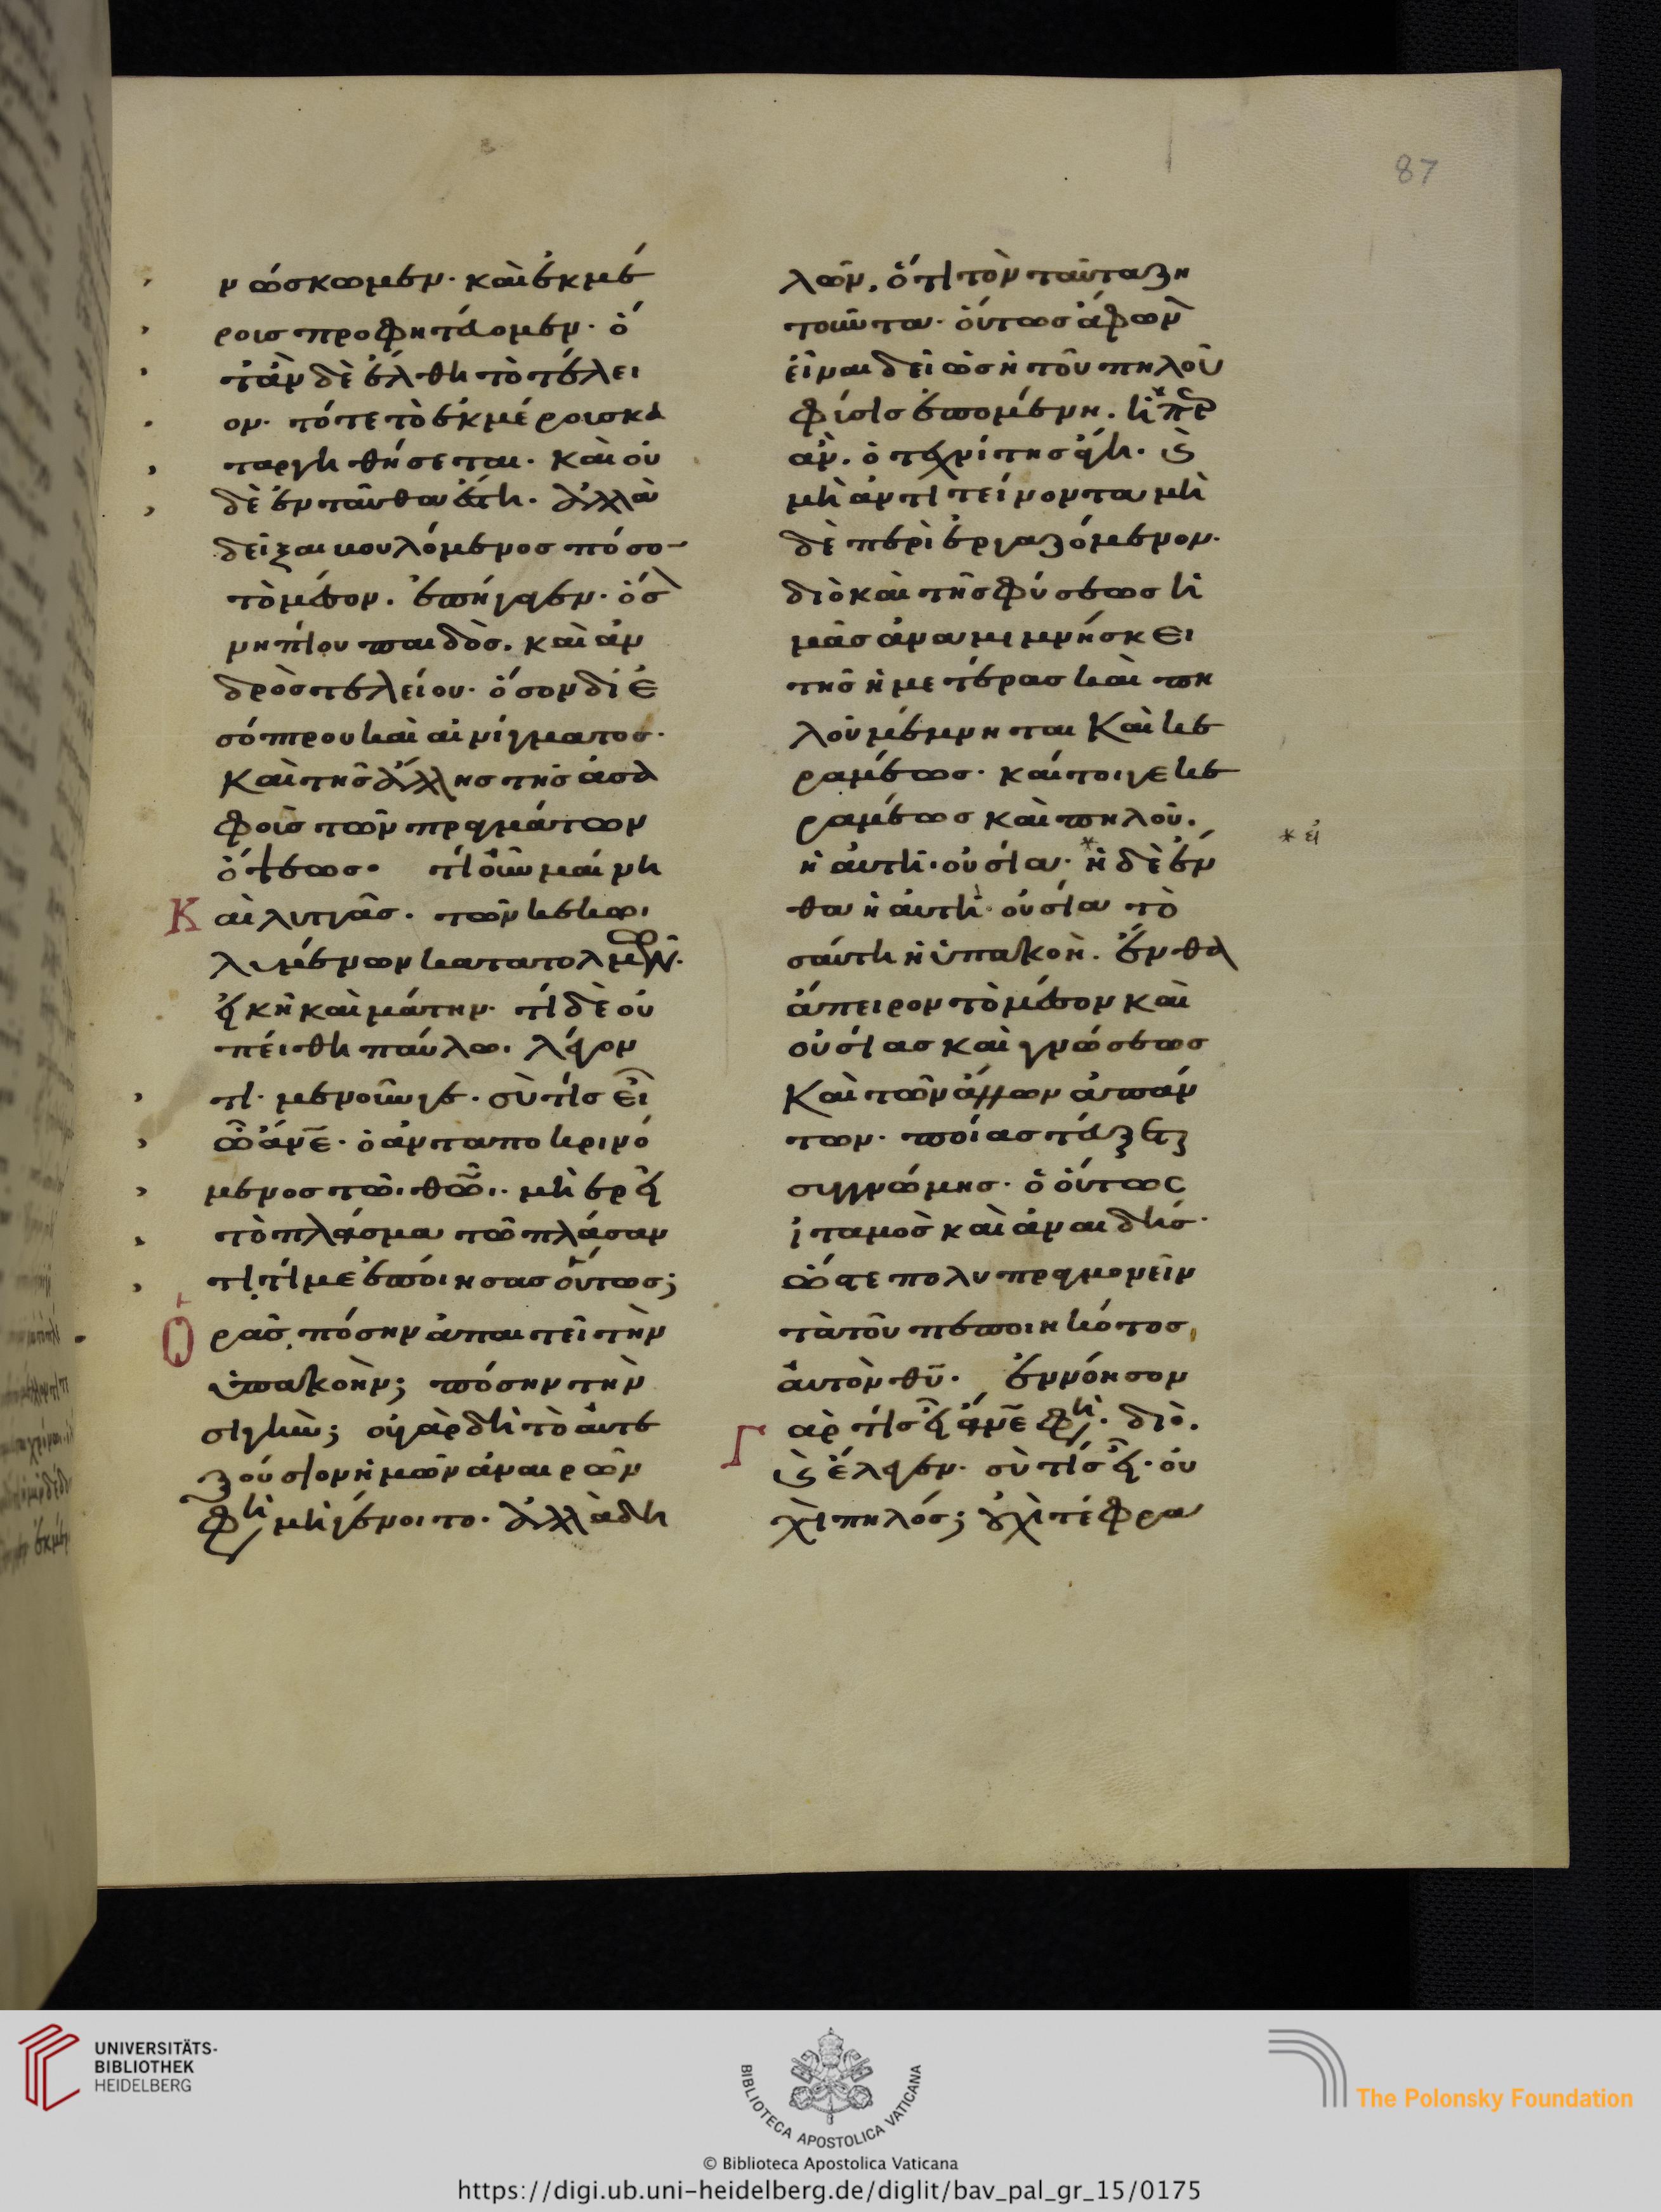 87
νώσκωμεν· καὶ ἐκ μέ
ροισ προφητεύομεν· ὁ
τὰν δὲ ἔλθη τὸ τέλει
ον· τότε τὸ ἐκ μέρουσ κα
ταργηθήσεται· καὶ οὐ
δὲ ἐνταῦθα ἔστη. ἀλλὰ
δεῖξαι βουλόμενοσ πόσο
τὸ μέσον. ἐπήγαγεν· ὅσ
νηπίου παιδὸσ. καὶ ἀν
δρὸσ τελείου· ὅσον δι ἐ
σόπτρου καὶ αἰνίγματοσ·
καὶ τῆσ ἄλλησ τῆσ ἀσα
φοῦσ τῶν πραγμάτων
ὄψεωσ· τί οὖν μαίνη
Καὶ λυττᾶσ. τῶν κεκω
λυμένων κατατολμῶν·
εἰκῆ καὶ μάτην· τί δὲ οὐ
πείθη παύλω. λέγον
τι· μενοῦνγε. σὺ τίσ εἶ
ὦ ἄνε· ὁ ἀνταποκρινό
μενοσ τῶ θῶ. μὴ ἐρεῖ
τὸ πλάσμα τῶ πλάσαν
τι τί με ἐποίησασ οὕτωσ;
Ὁρᾶσ πόσην ἀπαιτεῖ τὴν
ὑπακοὴν; πόσην τὴν
σιγὴν; οὐ γὰρ δὴ τὸ αὐτε
ξούσιον ἡμῶν ἀναιρῶν
φη μὴ γένοιτο· ἀλλὰ δη
λῶν. ὅτι τὸν ταῦτα ζη
τοῦντα· οὕτωσ ἄφων
εἶναι δεῖ ὡσ ἡ τοῦ πηλοῦ
φύσισ ἑπομένη. ἧπερ
ἂν. ὁ τεχνίτησ ἄγη. καὶ
μὴ ἀντιτείνοντα μὴ
δὲ περιεργαζόμενον·
διὸ καὶ τῆσ φύσεωσ ἡ
μᾶσ ἀναμιμνήσκει
τῆσ ἡμετέρασ καὶ πη
λοῦ μέμνηται καὶ κε
ραμέωσ· καίτοιγε κε
ραμέωσ καὶ πηλοῦ.
* εἰ
ἡ αὐτὴ οὐσία· * ἡ δὲ ἔν
θα ἡ αὐτὴ οὐσία το
σαύτη ἡ ὑπακοὴ. ἔνθα
ἄπειρον τὸ μέσον καὶ
οὐσίασ καὶ γνώσεωσ
καὶ τῶν ἄλλων ἁπάν
των· ποίασ τεύξεται
συγγνώμησ· ὁ οὕτωσ
ἰταμὸσ καὶ ἀναιδὴσ·
ὥστε πολυπραγμονεῖν
τὰ τοῦ πεποιηκότοσ
αὐτὸν θυ. ἐννόησον
Γὰρ τίσ εἶ ἄνε φη. διὸ.
καὶ ἔλεγεν· σὺ τίσ εἶ· οὐ
χὶ πηλόσ; οὐχὶ τέφρα
UNIVERSITÄTS-
BIBLIOTHEK
HEIDELBERG
BIBLIOTECA APOSTOLICA VATICANA
The Polonsky Foundation
© Biblioteca Apostolica Vaticana
https://digi.ub.uni-heidelberg.de/diglit/bav_pal_gr_15/0175